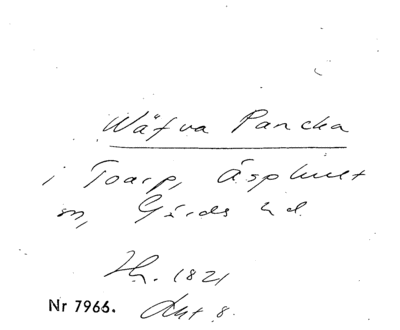 Wäfva Pancka
i Toarp, Äsphult
sn, Gärds hd.
Th. 1821
Nr 7966. Akt 8.